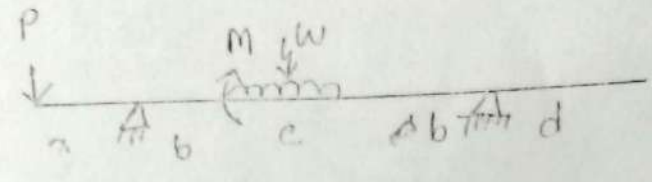 P
M W
a b c b d